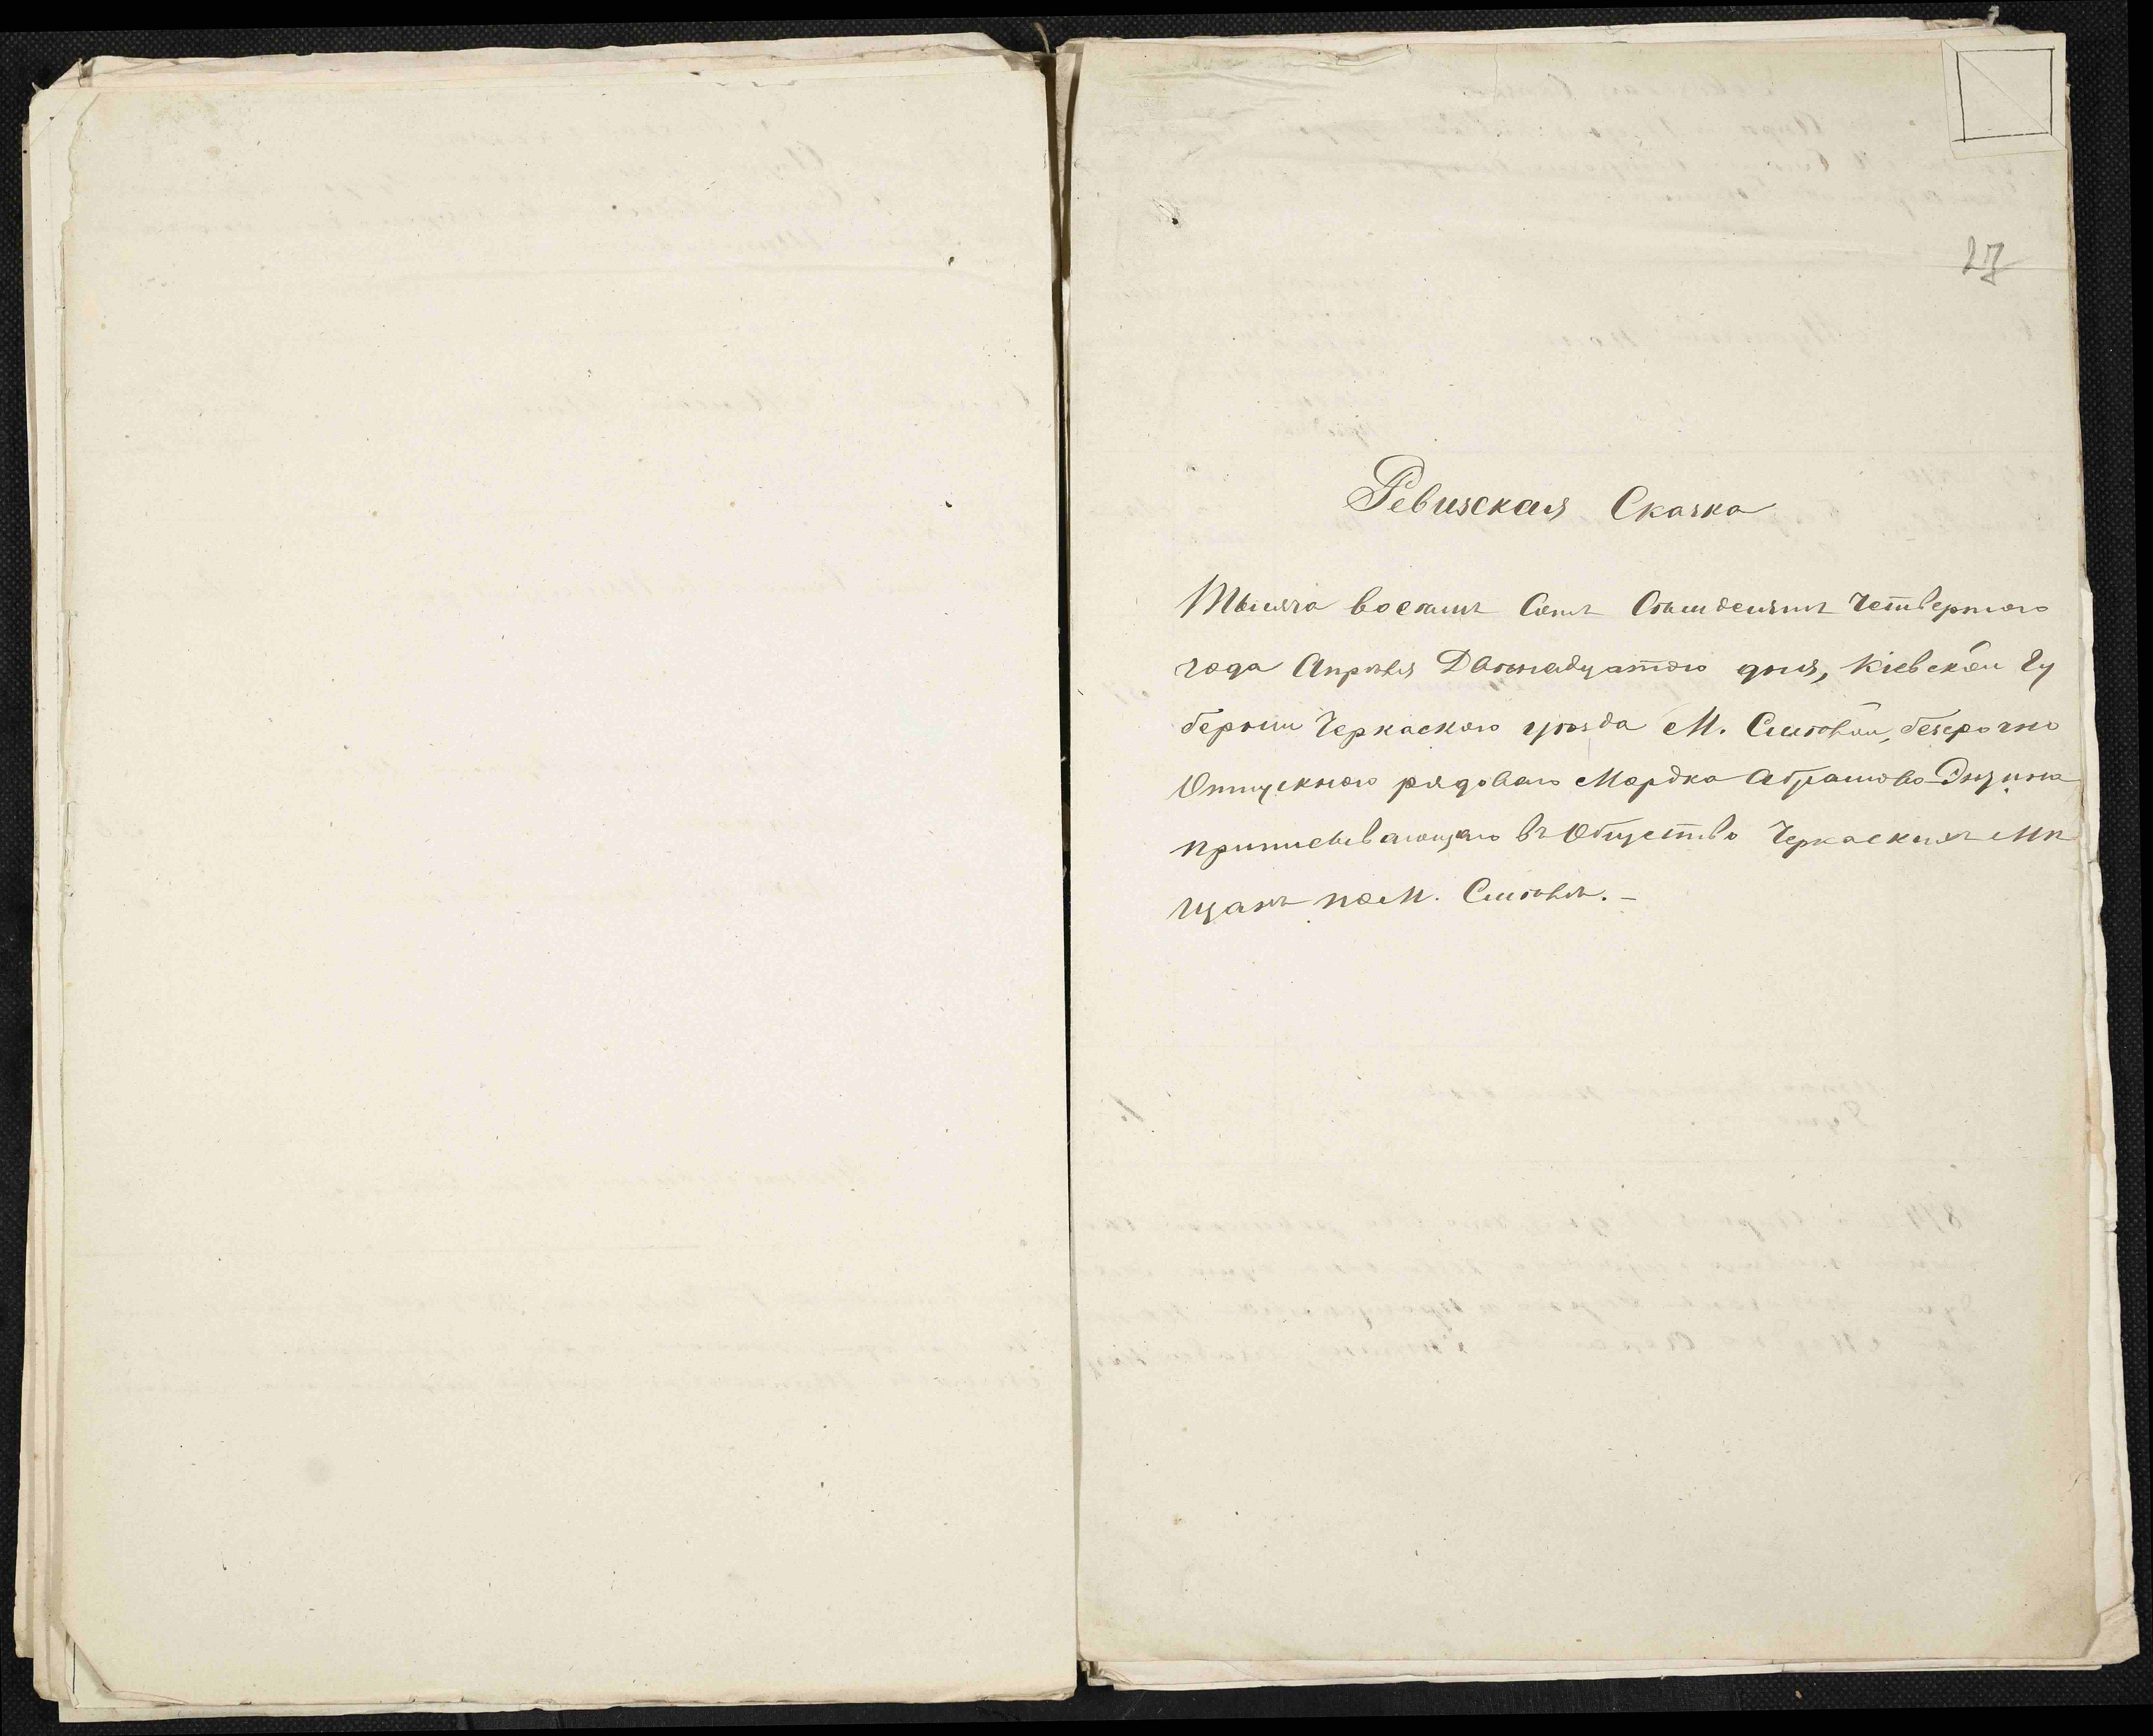 27
Ревизская Сказка
Тысяча восемь Сотъ Семьдесятъ Четвертого
года Апрѣля Двѣнадцатого дня, Кіевской Гу
берніи Черкаского уѣзда М. Смѣлой, безсрочно
Отпускного рядового Мордка Абрамова
приписывающаго въ Общество Черкаскихъ Мѣ
щанъ по М. Смѣлѣ. –